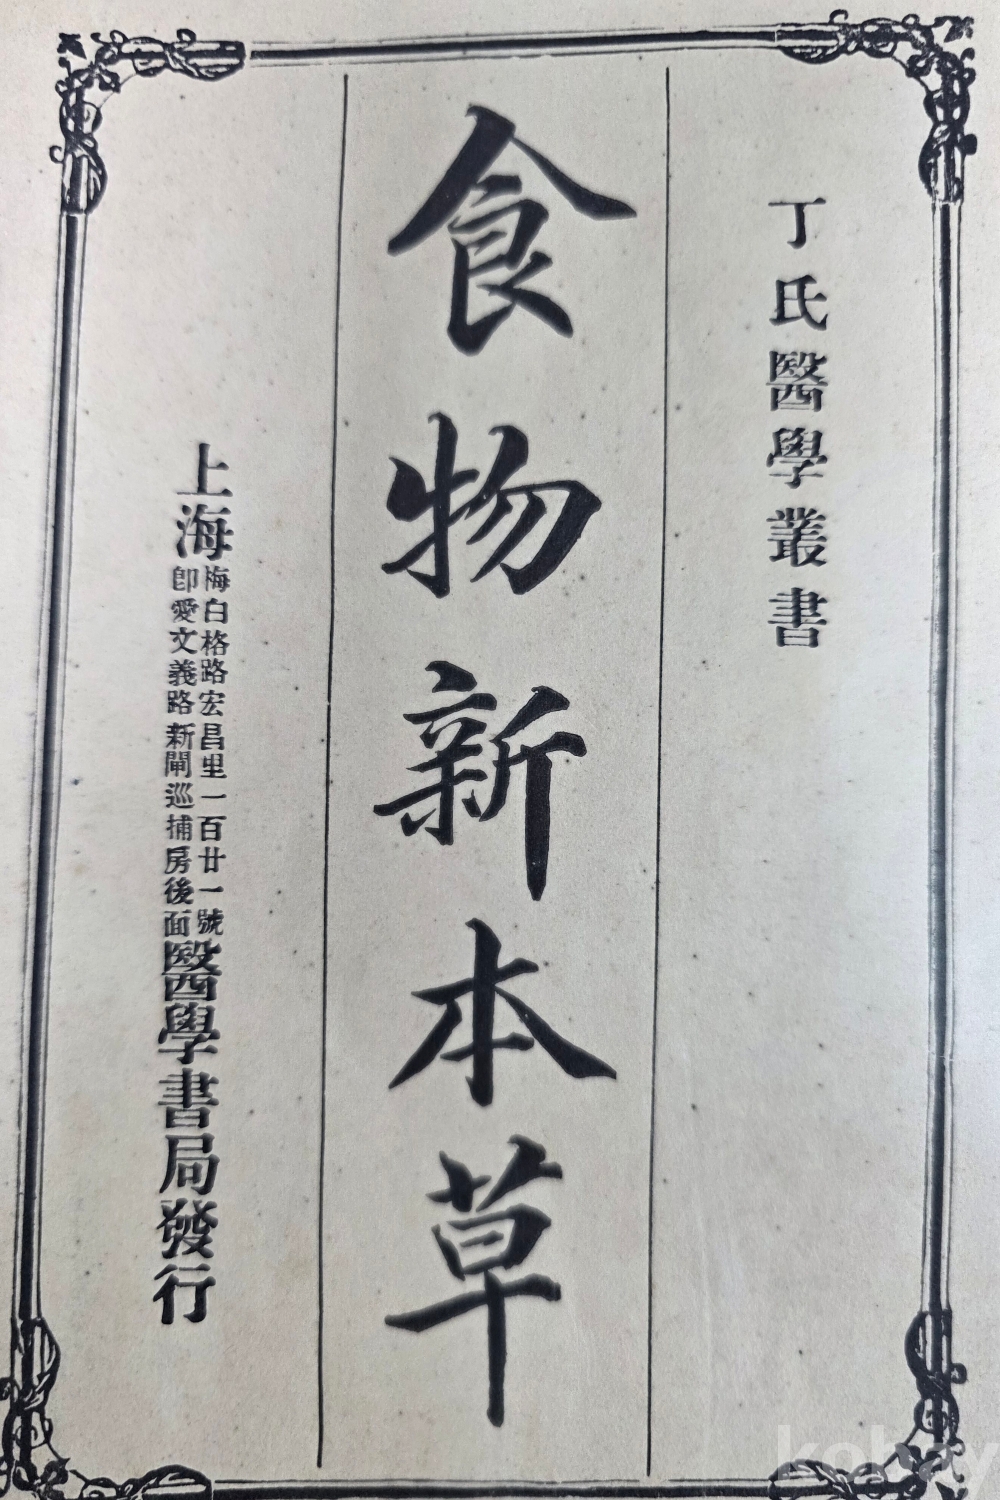 丁氏醫學叢書
食物新本草
上海
梅白格路宏昌里一百廿一號
卽愛文義路新閘巡捕房後面
醫學書局發行
kobay